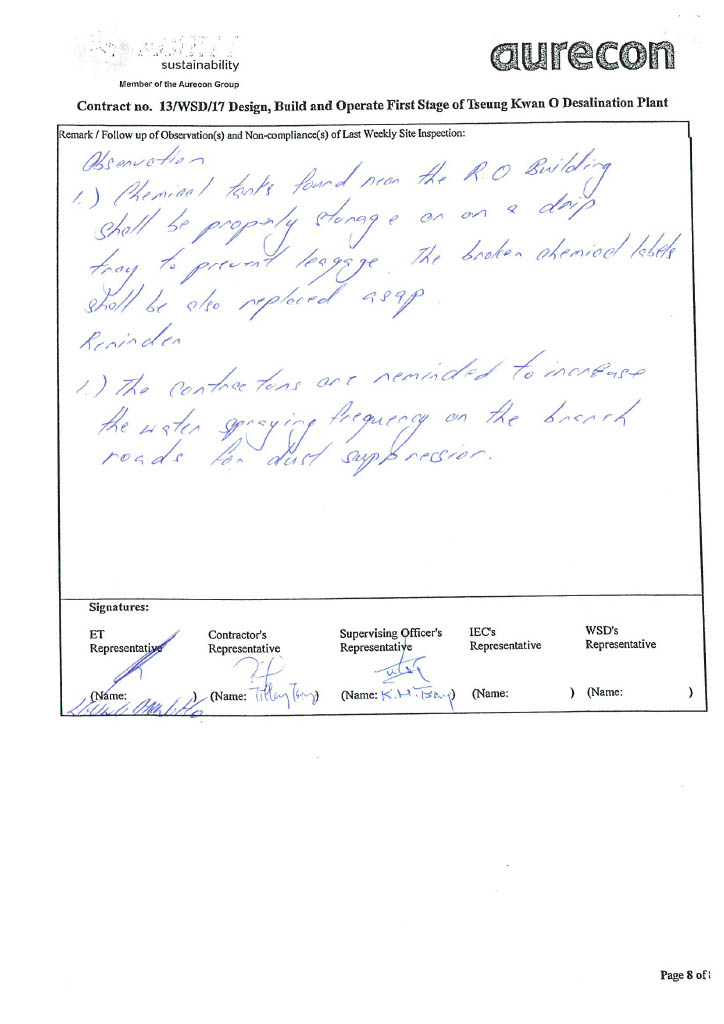 sustainability
aurecon
Member of the Aurecon Group
Contract no. 13/WSD/17 Design, Build and Operate First Stage of Tseung Kwan O Desalination Plant
Remark / Follow up of Observation(s) and Non-compliance(s) of Last Weekly Site Inspection:
Observation
1.) Chemical tanks found near the R.O Building
shall be properly storage on on a drip
tray to prevent leagage. The broken chemical labels
shall be also replaced asap.
Reminder
1.) The contractors are reminded to increase
the water spraying frequency on the branch
roads for dust suppression.
Signatures:
ET Representative
Contractor's Representative
Supervising Officer's Representative
IEC's Representative
WSD's Representative
(Name: ) (Name: ) (Name: K.H. Tsang) (Name: ) (Name: )
Page 8 of